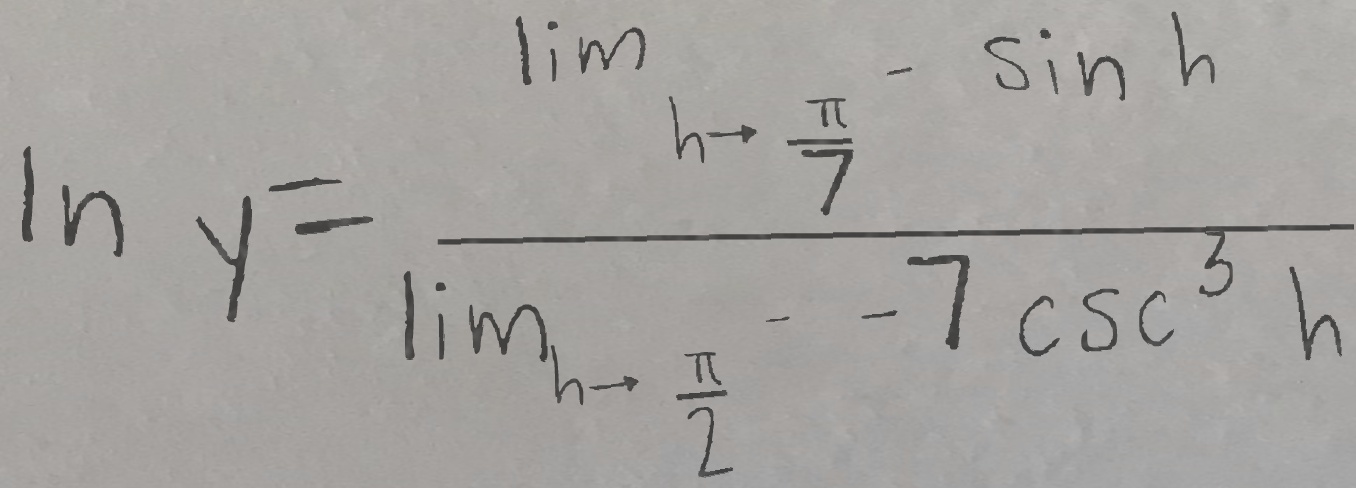 \ln y = \frac{\lim_{h \to \frac{\pi}{7}^{-}} \sin h}{\lim_{h \to \frac{\pi}{2}^{-}} -7 \csc^{3} h}